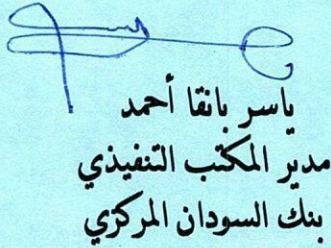 ياسر بانقا أحمد
مدير المكتب التنفيذي
بنك السودان المركزي